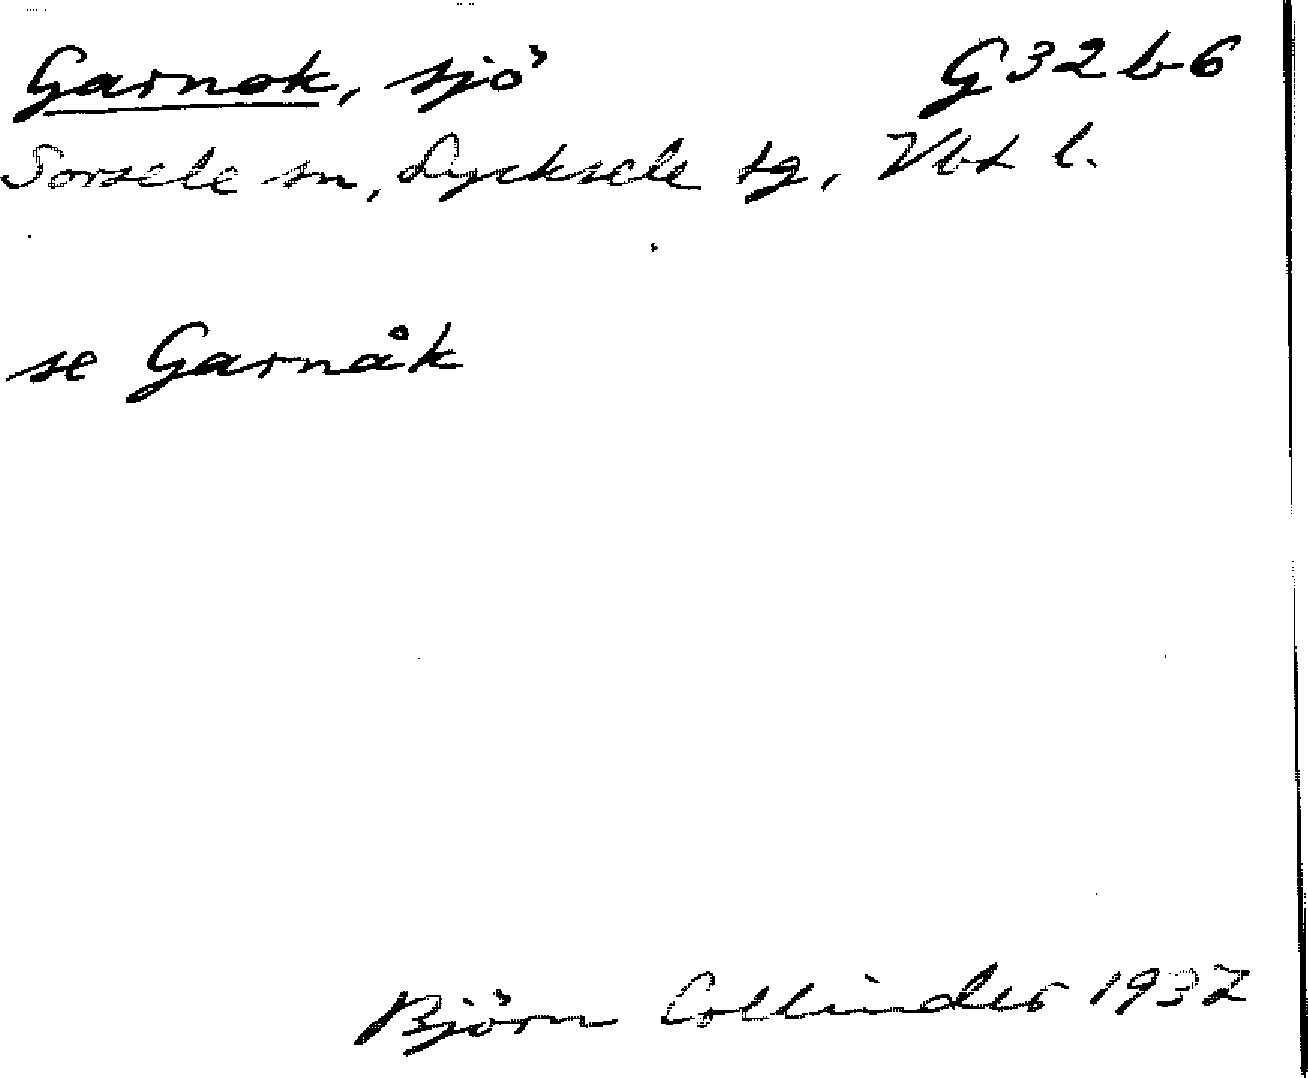 Garnok, sjö G32b6
Sorsele sn, Lycksele tg, Vbt l.
se Garnåk
Björn Collinder 1937